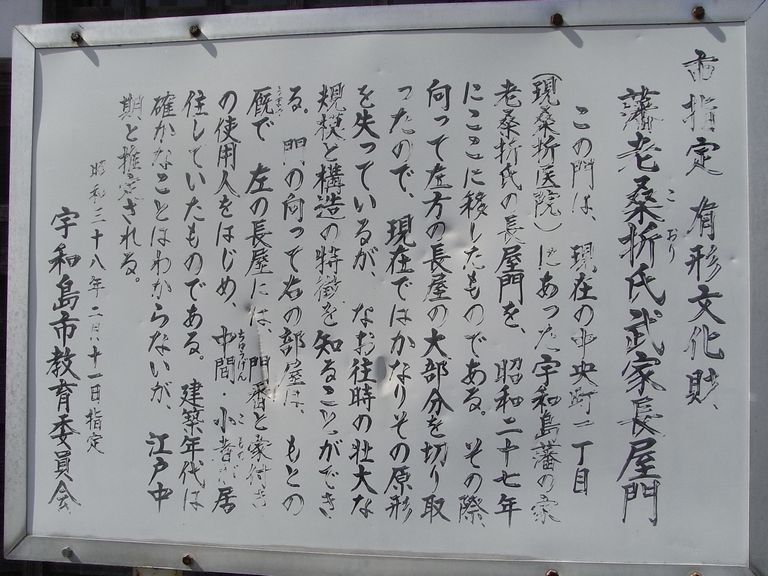 市指定 有形文化財
藩老桑折氏武家長屋門
こおり
この門は、現在の中央町二丁目
(現桑折医院)にあった宇和島藩の家
老桑折氏の長屋門を、昭和二十七年
にここに移したものである。その際
向って左方の長屋の大部分を切り取
ったので、現在ではかなりその原形
を失っているが、なお往時の壮大な
規模と構造の特徴を知ることができ
る。門の向って右の部屋は、もとの
厩で左の長屋には、門番と家付き
うまや
の使用人をはじめ、中間・小者が居
ちゅうげん こもの
住していたものである。建築年代は
確かなことはわからないが、江戸中
期と推定される。
昭和三十八年二月十一日指定
宇和島市教育委員会